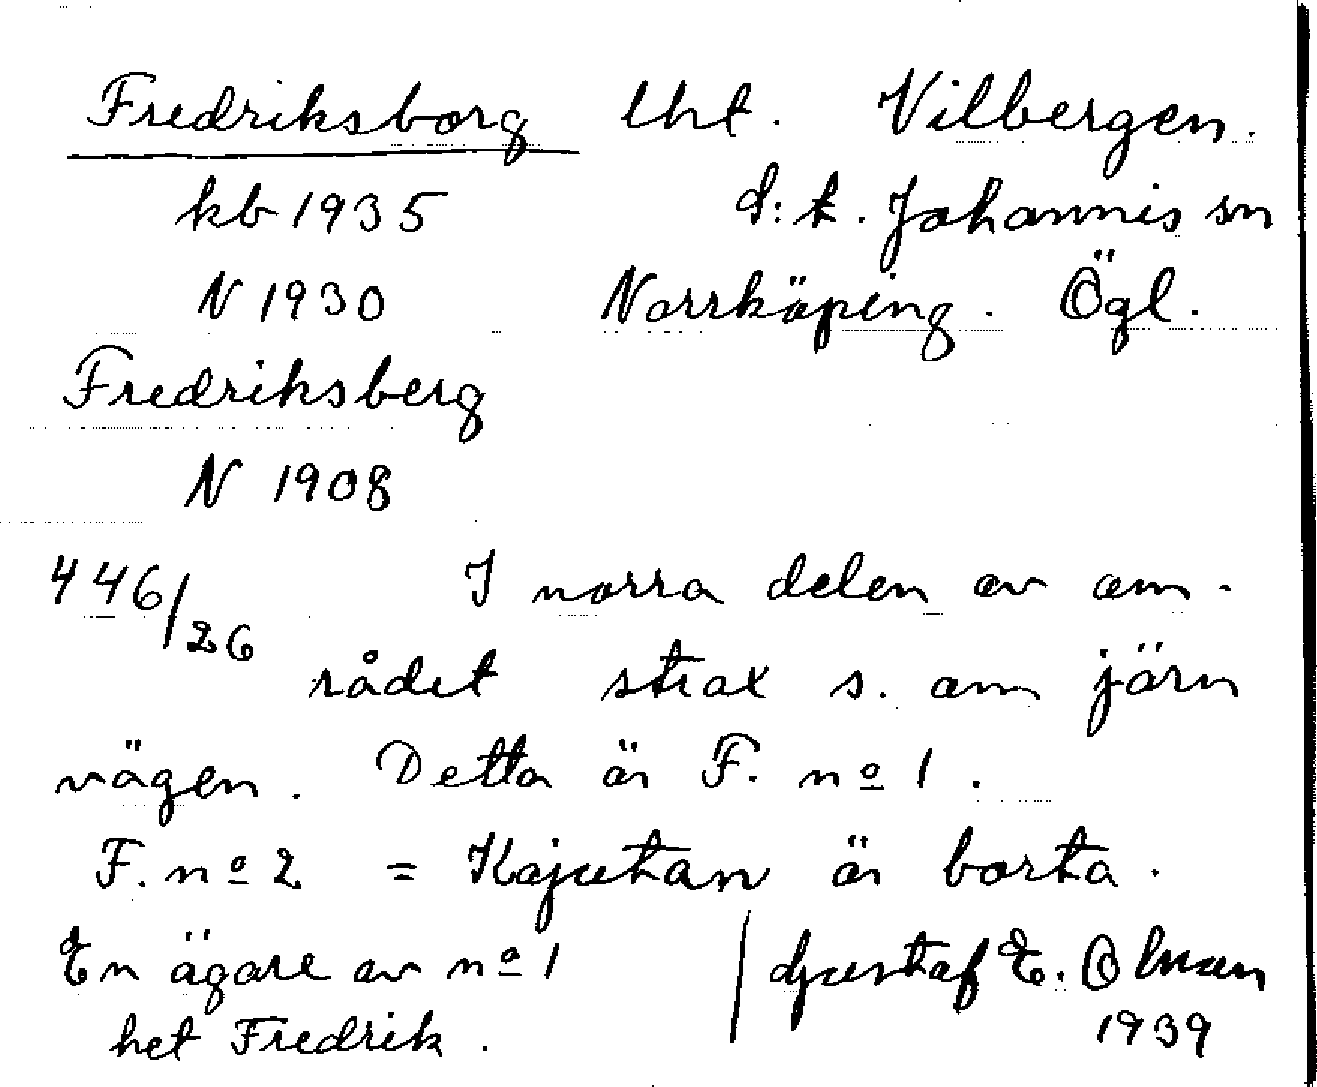 Fredriksborg lht. Vilbergen.
kb 1935 S:t. Johannis sn
N 1930 Norrköping. Ögl.
Fredriksberg
N 1908
446/26 I norra delen av om-
rådet strax s. om järn
vägen. Detta är F. nº 1.
F. nº 2 = Kajutan är borta.
En ägare av nº 1
het Fredrik.
Gustaf E. Olman
1939